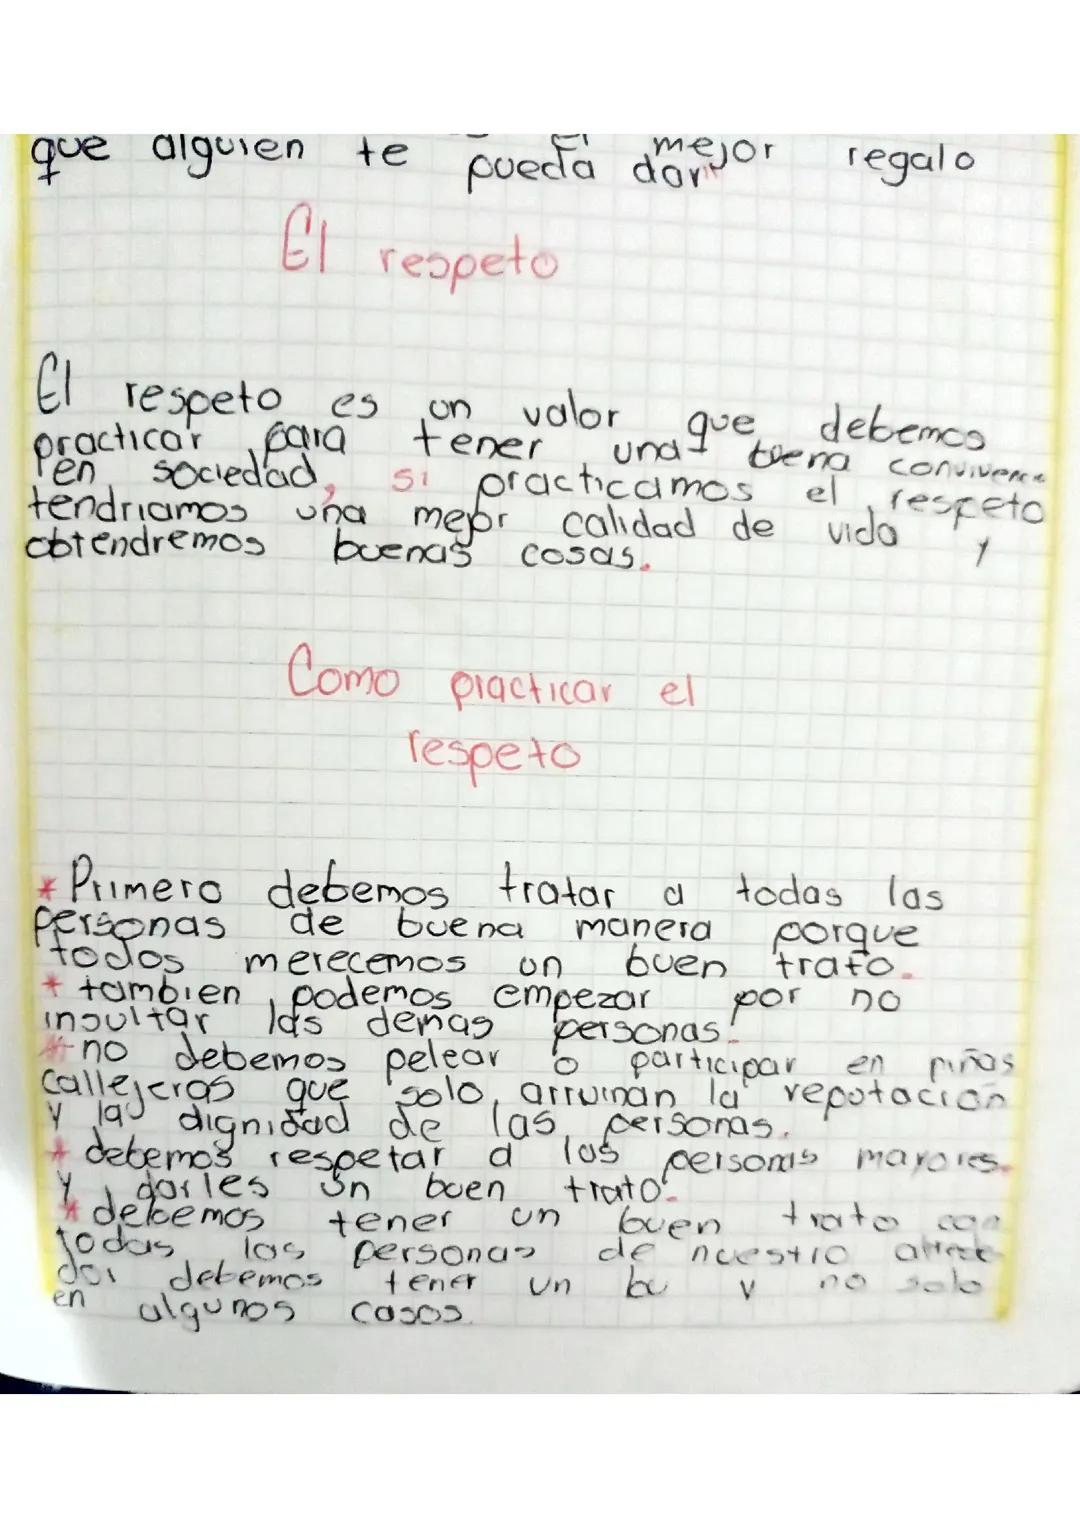 que alguien te pueda dar El mejor regalo
El respeto
El respeto es un valor que debemos
practicar para tener una buena convivenc
en sociedad, si practicamos el respeto
tendriamos una mejor calidad de vida y
obtendremos buenas cosas.
Como practicar el
respeto
* Primero debemos tratar a todas las
personas de buena manera porque
todos merecemos un buen trato.
* tambien podemos empezar por no
insultar las demas personas.
* no debemos pelear o participar en piñas
callejeras que solo arruinan la reputacion
y la dignidad de las personas.
* debemos respetar a las personas mayores.
y darles un buen trato.
* debemos tener un buen trato con
todas las personas de nuestro
dor debemos tener un bu y no solo
en algunos casos.